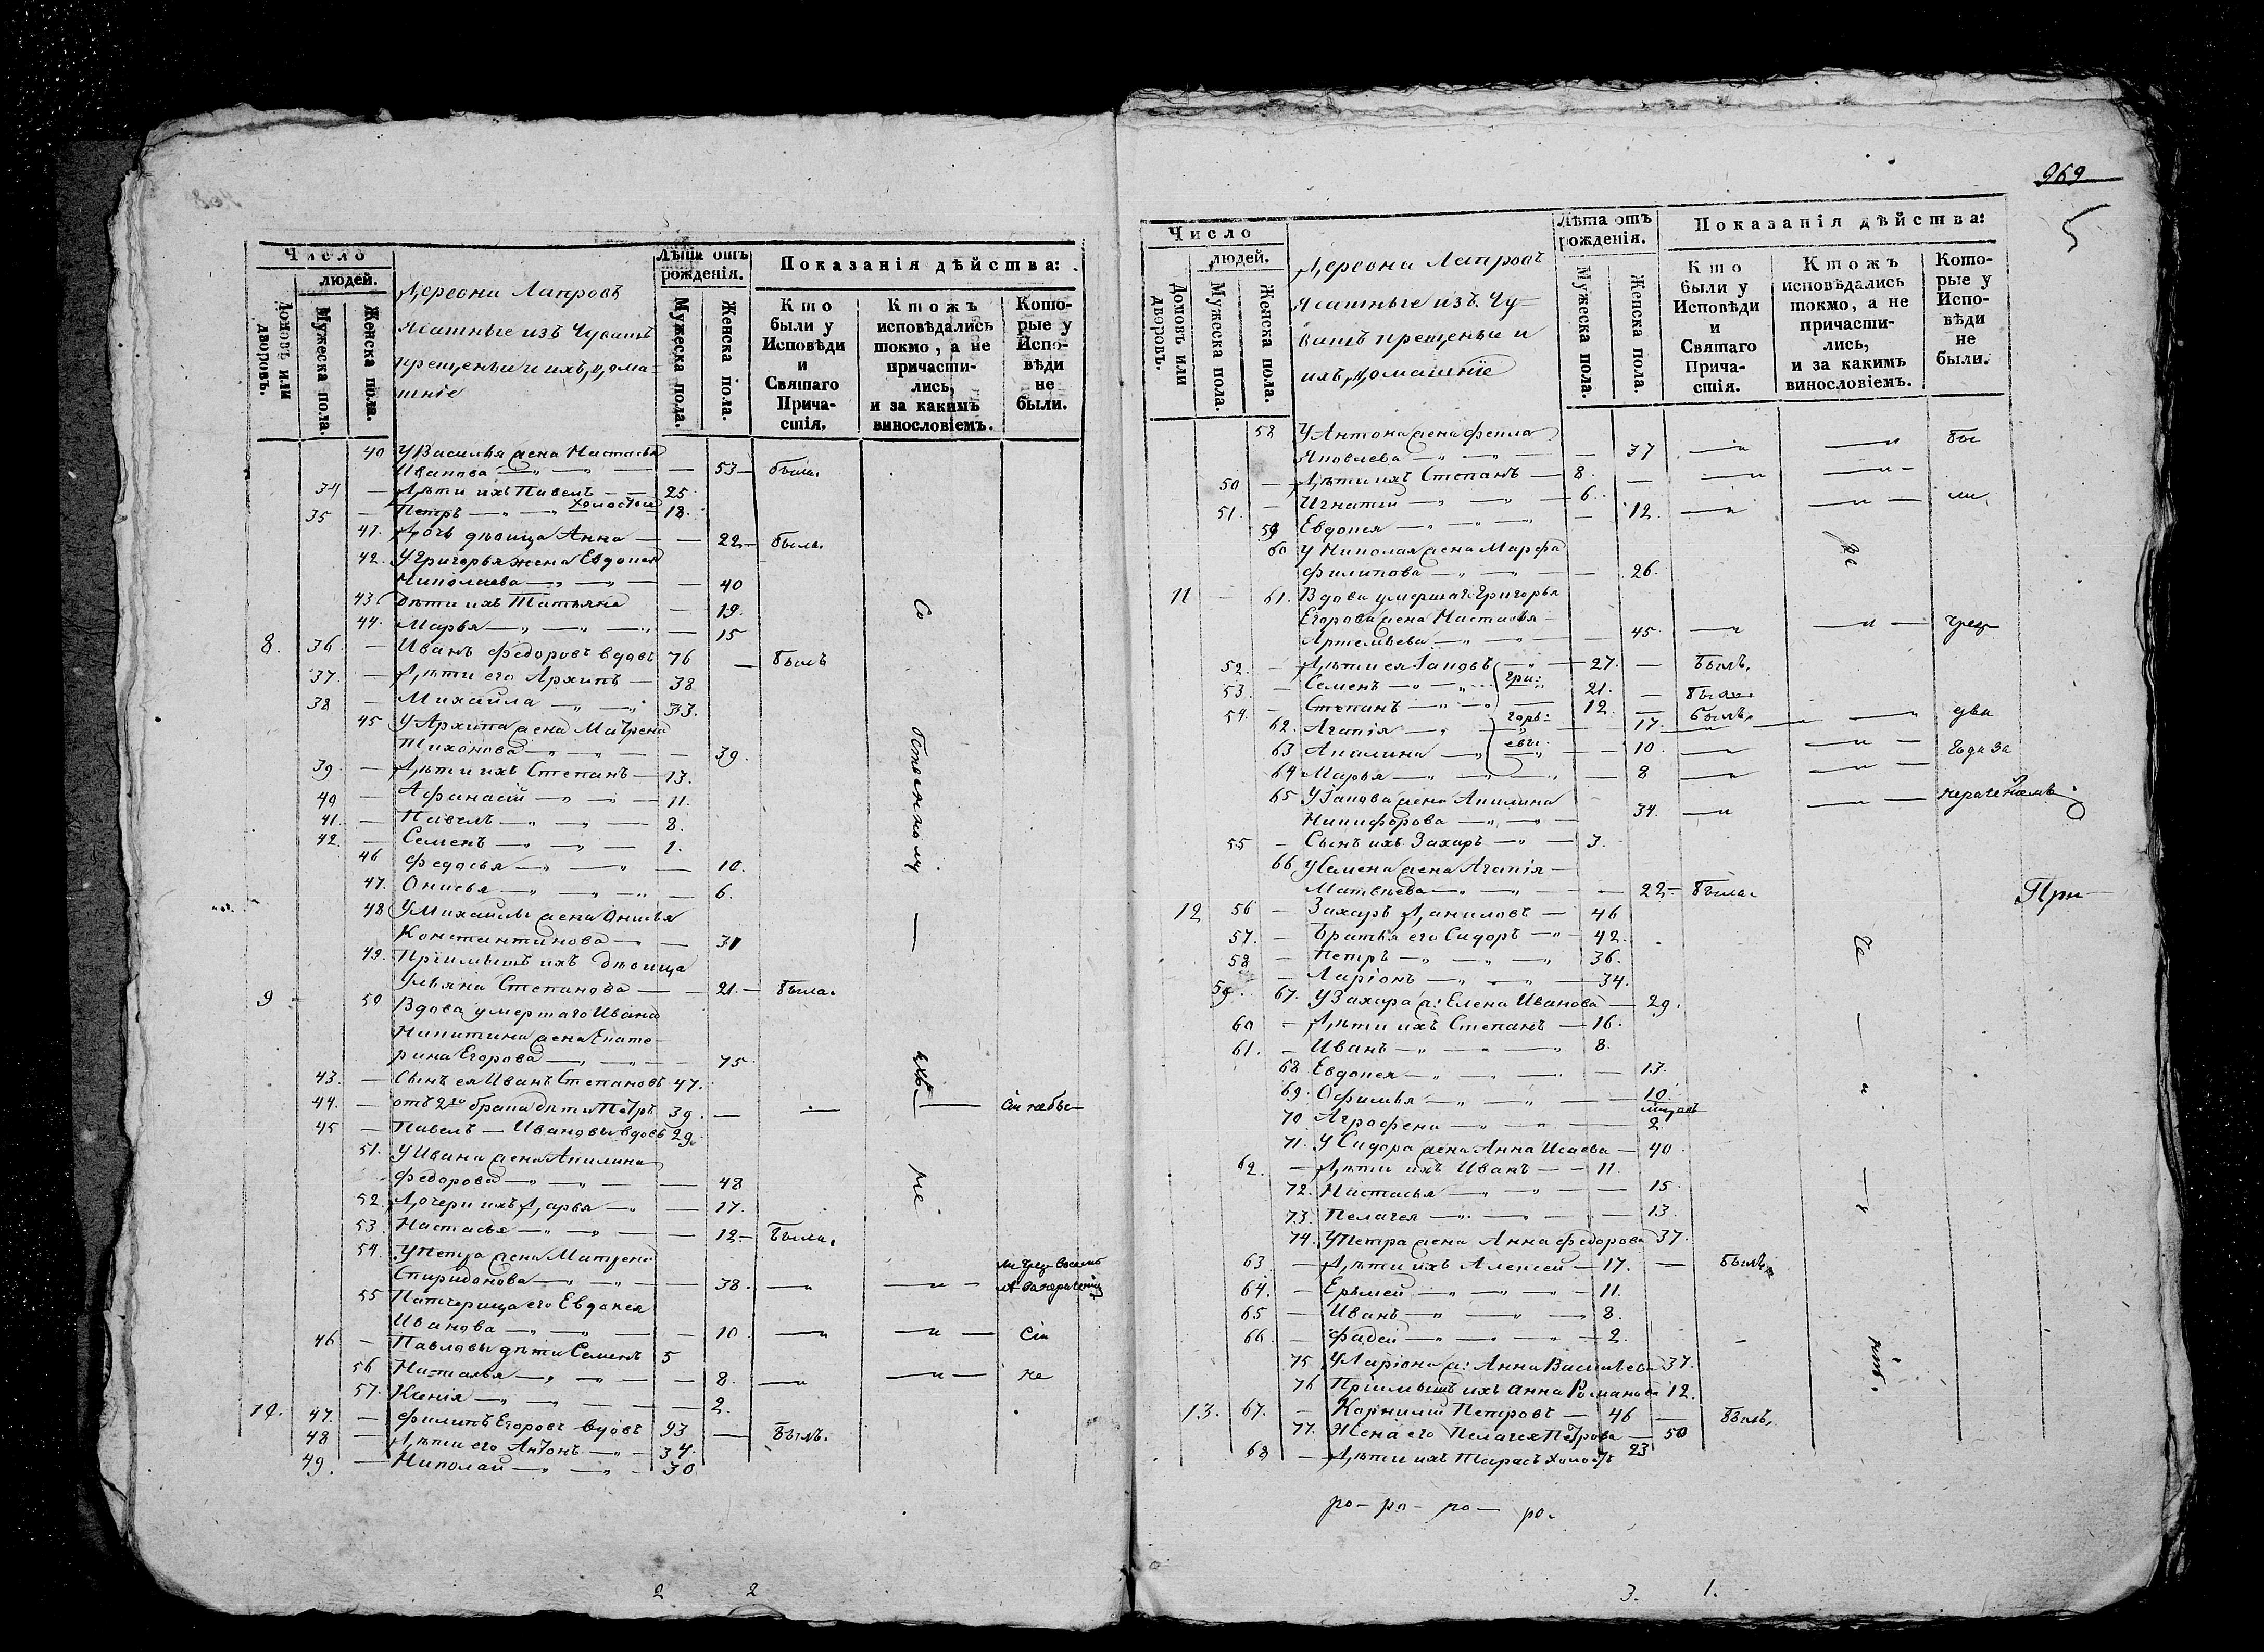 Число
людей.
Домовъ или дворовъ.
Мужеска пола.
Женска пола.
Деревни Лапровъ
ясашные изъ Чувашъ
крещеные и ихъ дома-
шніе
Лѣта отъ рожденія.
Мужеска пола.
Женска пола.
Показанія дѣйства:
Кто были у Исповѣди и Святаго Прича-стія.
Ктожъ исповѣдались токмо, а не причасти-лись, и за какимъ винословіемъ.
Кото-рые у Испо-вѣди не были.
40 У Василья жена Настасья
Иванова — 53 — была.
34 — Дѣти ихъ Павелъ — 25.
35 — Петръ — холостые 18.
41. Дочь дѣвица Анна — 22 — была.
42. У Григорья жена Евдокея
Николаева — 40
43 Дѣти ихъ Татьяна — 19.
44. Марья — 15
8. 36. — Иванъ Федоровъ вдовъ 76 — былъ
37. — Дѣти его Архипъ — 38
38 — Михайла — 33.
45 У Архипа жена Матрена
Тихонова — 39.
39. — Дѣти ихъ Степанъ — 13.
40 — Афанасій — 11.
41. — Павелъ — 8.
42. — Семенъ — 1.
46 Федосья — 10.
47. Онисья — 6.
48 У Михайлы жена Онисья
Константинова — 31
49. Пріимышъ ихъ дѣвица
Ульяна Степанова — 21. — была.
9 50 Вдова умершаго Ивана
Никитина жена Екате-
рина Егорова — 75
43. — Сынъ ея Иванъ Степановъ 47.
44. — отъ 2го брака дѣти Петръ 39. — сіи не бы-
45 — Павелъ — Ивановы вдовъ 29.
51. У Ивана жена Акилина
Федорова — 48
52. Дочери ихъ Дарья — 17.
53. Настасья — 12 — была.
54. У Петра жена Матрена
Спиридонова — 38.
55 Патчерица его Евдокея
Иванова — 10 — сіи
46 — Павловы дѣти Семенъ 5
56 Наталья — 8. — не
57. Ксенія — 2.
10. 47. — Филипъ Егоровъ вдовъ 93 — былъ.
48 — Дѣти его Антонъ — 34.
49. — Николай — 30
2 2
969
5
Число
людей.
Домовъ или дворовъ.
Мужеска пола.
Женска пола.
Деревни Лапровъ
Ясашные изъ Чу-
вашъ крещеные и
ихъ домашніе
Лѣта отъ рожденія.
Мужеска пола.
Женска пола.
Показанія дѣйства:
Кто были у Исповѣди и Святаго Прича-стія.
Ктожъ исповѣдались токмо, а не причасти-лись, и за какимъ винословіемъ.
Кото-рые у Испо-вѣди не были.
58 У Антона жена Фекла
Яковлева — 37 — бы
50 — Дѣти ихъ Степанъ — 8.
51. — Игнатей — 6. — ли
59 Евдокея — 12.
60 У Николая жена Марфа
Филипова — 26.
11 — 61. Вдова умершаго Григорья
Егорова жена Настасья
Артемьева — 45 — чрез
52. — Дѣти ея Іаковъ — 27. — былъ.
53 — Семенъ — Гри: 21. — былъ.
54. — Степанъ — 12. — былъ.
62. Агапія — горь: 17. — два
63 Акилина — евы. 10. — года за
64 Марья — 8
65 У Іакова жена Акилина — нераченіемъ
Никифорова — 34.
55 — Сынъ ихъ Захаръ — 3.
66 У Семена жена Агапія
Матвѣева — 22 — была.
При-
12 56 — Захаръ Даниловъ — 46
57. — Братья его Сидоръ — 42.
58 — Петръ — 36.
59. — Ларіонъ — 34.
67. У Захара ж: Елена Иванова — 29.
60 — Дѣти ихъ Степанъ — 16.
61. — Иванъ — 8.
68 Евдокея — 13.
69. Офимья — 10.
70 Аграфена — 2
71. У Сидора жена Анна Исаева — 40
62. — Дѣти ихъ Иванъ — 11.
72. Настасья — 15
73. Пелагея — 13
74. У Петра жена Анна Федорова 37.
63 — Дѣти ихъ Алексей — 17. — былъ.
64. — Ермей — 11.
65 — Иванъ — 8.
66. — Фадей — 2.
75 У Ларіона ж: Анна Васильева 37.
76 Пріимышъ ихъ Анна Романова 12.
13. 67. — Корнилій Петровъ — 46 — былъ.
77. Жена его Пелагея Петрова — 50
68 — Дѣти ихъ Тарасъ холостъ 23
ро- ро- ро- ро.
3. 1.